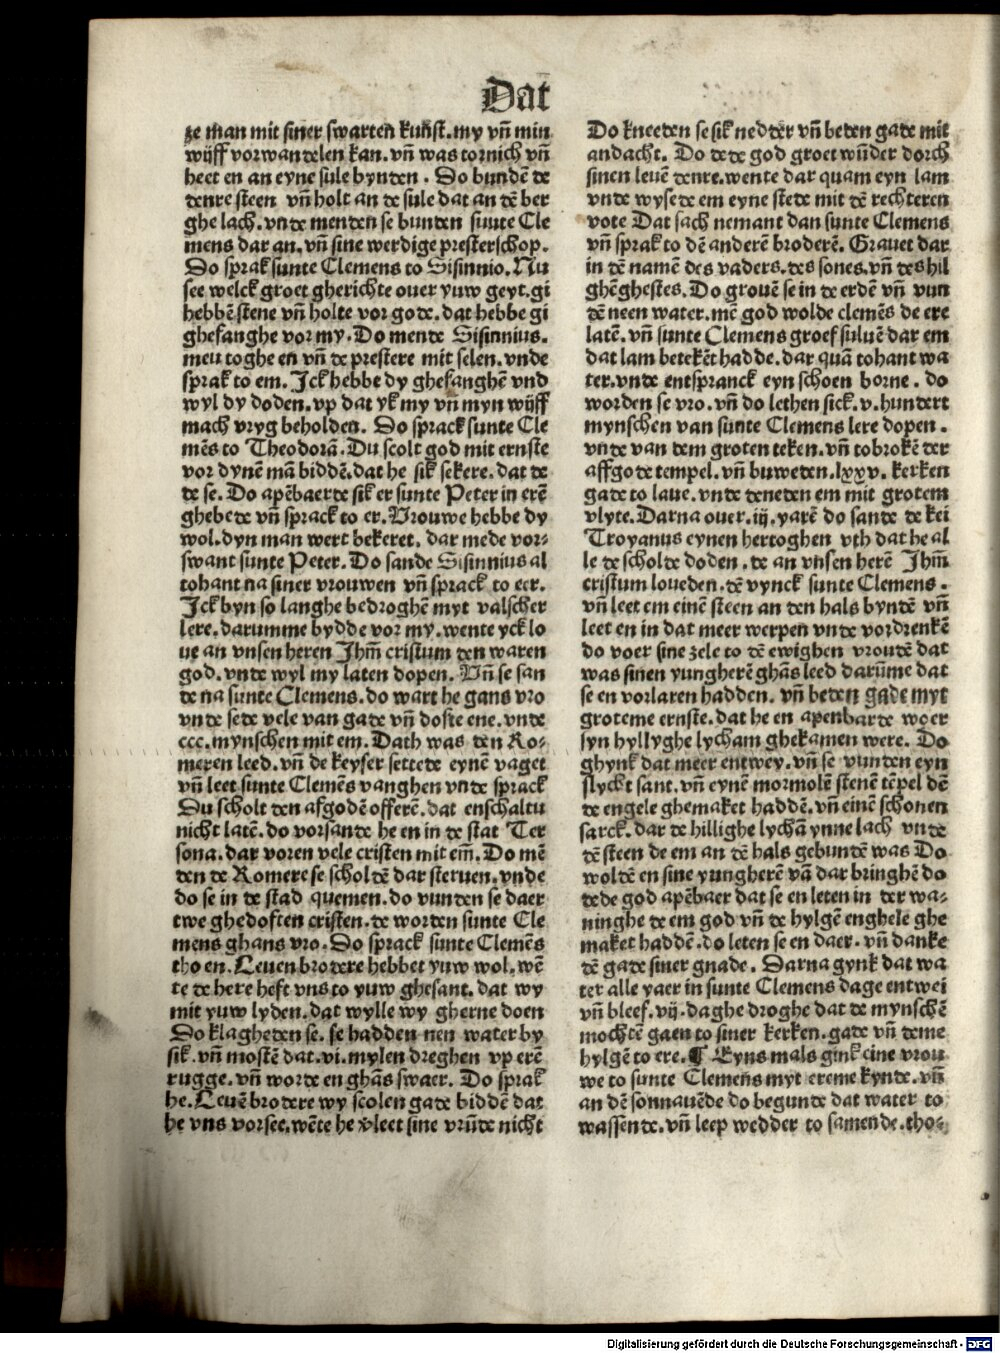 Dat
ze man mit siner swarten kunst. my vn̄ min
wijff vorwandelen kan. vn̄ was tornich vn̄
heet en an eyne sule bynden. Do bundē de
denre steen vn̄ holt an de sule dat an dē ber
ghe lach. vnde menden se bunden sunte Cle
mens dar an. vn̄ sine werdige presterschop.
Do sprak sunte Clemens to Sisinnio. Nu
see welck groet gherichte ouer yuw geyt. gi
hebbē stene vn̄ holte vor gode. dat hebbe gi
ghefanghe vor my. Do mende Sisinnius.
men toghe en vn̄ de prestere mit selen. vnde
sprak to em. Jck hebbe dy ghefanghē vnd
wyl dy doden. vp dat yk my vn̄ myn wijff
mach vryg beholden. Do sprack sunte Cle
mēs to Theodorā. Du scolt god mit ernste
vor dynē mā biddē. dat he sik sekere. dat de
de se. Do apēbaerde sik er sunte Peter in erē
ghebede vn̄ sprack to er. Vrouwe hebbe dy
wol. dyn man wert bekeret. dar mede vor⸗
swant sunte Peter. Do sande Sisinnius al
tohant na siner vrouwen vn̄ sprack to eer.
Jck byn so langhe bedroghē myt valscher
lere. darumme bydde vor my. wente yck lo
ue an vnsen heren Jhm̄ cristum den waren
god. vnde wyl my laten dopen. Vn̄ se san
de na sunte Clemens. do wart he gans vro
vnde sede vele van gade vn̄ dofte ene. vnde
ccc. mynschen mit em. Dath was den Ro⸗
meren leed. vn̄ de keyser settede eynē vaget
vn̄ leet sunte Clemēs vanghen vnde sprack
Du scholt den afgodē offerē. dat enschaltu
nicht latē. do vorsande he en in de stat Ter
sona. dar voren vele cristen mit em̄. Do mē
den de Romere se scholdē dar steruen. vnde
do se in de stad quemen. do vunden se daer
twe ghedoften cristen. de worden sunte Cle
mens ghans vro. Do sprack sunte Clemēs
tho en. Leuen brodere hebbet yuw wol. wē
te de here heft vns to yuw ghesant. dat wy
mit yuw lyden. dat wylle wy gherne doen
Do klagheden se. se hadden nen water by
sik. vn̄ mostē dat. vi. mylen dreghen vp erē
rugge. vn̄ worde en ghās swaer. Do sprak
he. Leuē brodere wy scolen gade biddē dat
he vns vorsee. wēte he v̄leet sine vrūde nicht
Do kneeden se sik nedder vn̄ beden gade mit
andacht. Do dede god groet wūder dorch
sinen leuē denre. wente dar quam eyn lam
vnde wysede em eyne stede mit dē rechteren
vote Dat sach nemant dan sunte Clemens
vn̄ sprak to dē anderē broderē. Grauet dar
in dē namē des vaders. des sones. vn̄ des hil
ghēghestes. Do grouē se in de erdē vn̄ vun
dē neen water. mē god wolde clemēs de ere
latē. vn̄ sunte Clemens groef suluē dar em
dat lam betekēt hadde. dar quā tohant wa
ter. vnde entspranck eyn schoen borne. do
worden se vro. vn̄ do lethen sick. v. hundert
mynschen van sunte Clemens lere dopen.
vnde van dem groten teken. vn̄ tobrokē der
affgode tempel. vn̄ buweden. lxxv. kerken
gade to laue. vnde deneden em mit grotem
vlyte. Darna ouer. iij. yarē do sande de kei
Troyanus eynen hertoghen vth dat he al
le de scholde doden. de an vnsen herē Jhm̄
cristum loueden. dē vynck sunte Clemens.
vn̄ leet em einē steen an den hals byndē vn̄
leet en in dat meer werpen vnde vordrenkē
do voer sine zele to dē ewighen vroudē dat
was sinen yungherē ghās leed darūme dat
se en vorlaren hadden. vn̄ beden gade myt
groteme ernste. dat he en apenbarde woer
syn hyllyghe lycham ghekamen were. Do
ghynk dat meer entwey. vn̄ se vunden eyn
slycht sant. vn̄ eynē mormolē stenē tēpel dē
de engele ghemaket haddē. vn̄ einē schonen
sarck. dar de hillighe lychā ynne lach vnde
dē steen de em an dē hals gebundē was Do
woldē en sine yungherē vā dar bringhē do
dede god apēbaer dat se en leten in der wa⸗
ninghe de em god vn̄ de hylgē enghele ghe
maket haddē. do leten se en daer. vn̄ danke
dē gade siner gnade. Darna gynk dat wa
ter alle yaer in sunte Clemens dage entwei
vn̄ bleef. vij. daghe droghe dat de mynschē
mochtē gaen to siner kerken. gade vn̄ deme
hylgē to ere. ¶ Eyns mals gink eine vrou
we to sunte Clemens myt ereme kynde. vn̄
an dē sonnauēde do begunde dat water to
wassende. vn̄ leep wedder to samende. tho⸗
Digitalisierung gefördert durch die Deutsche Forschungsgemeinschaft - DFG